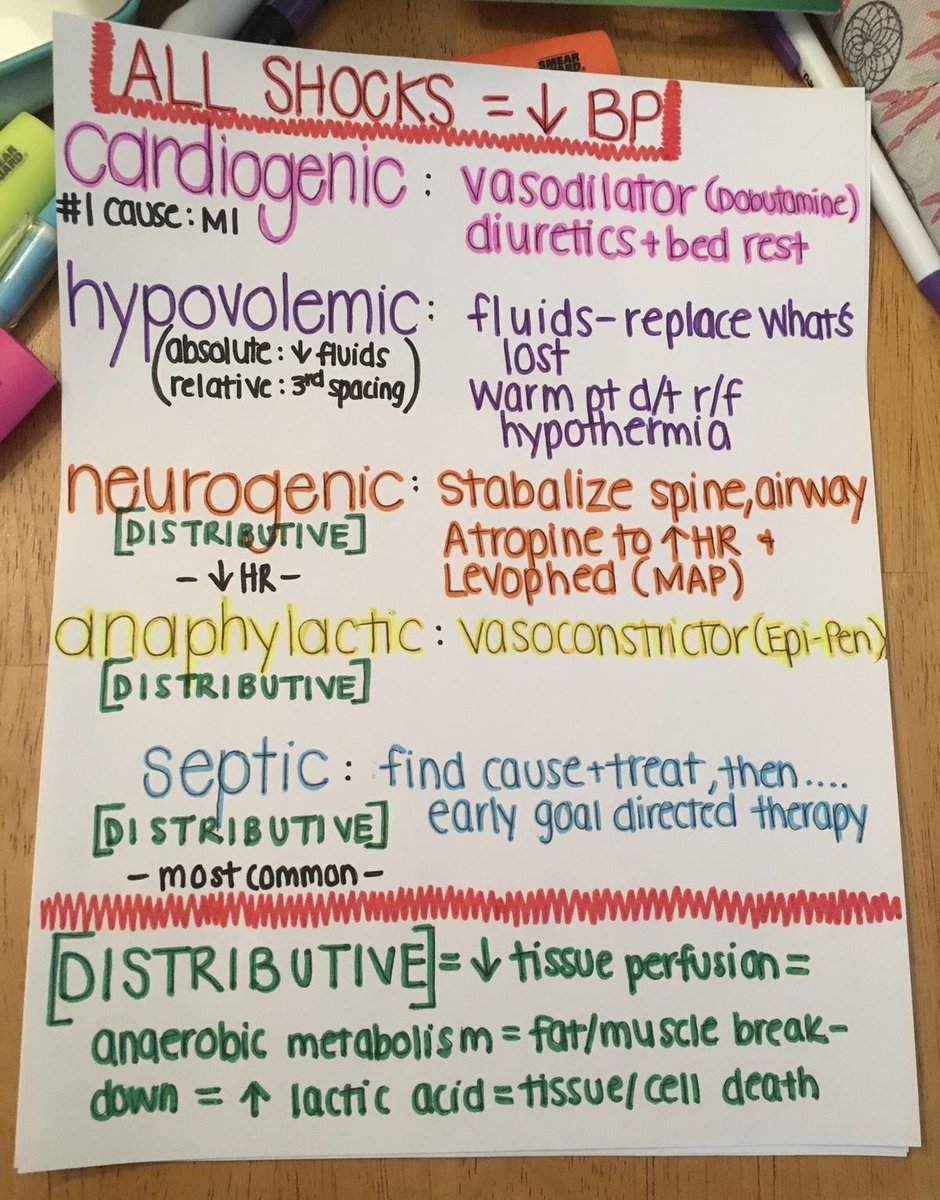 ALL SHOCKS = ↓ BP
SMEAR GUARD
SMEAR GUARD
cardiogenic : vasodilator (Dobutamine)
#1 cause: MI
diuretics + bed rest
hypovolemic : fluids - replace what's
lost
(absolute: ↓ fluids
relative: 3rd spacing)
warm pt d/t r/f
hypothermia
neurogenic : Stabalize spine, airway
[DISTRIBUTIVE]
Atropine to ↑ HR +
- ↓ HR -
Levophed (MAP)
anaphylactic : vasoconstrictor (Epi-Pen)
[DISTRIBUTIVE]
septic : find cause + treat, then....
[DISTRIBUTIVE]
early goal directed therapy
- most common -
[DISTRIBUTIVE] = ↓ tissue perfusion =
anaerobic metabolism = fat/muscle break-
down = ↑ lactic acid = tissue/cell death